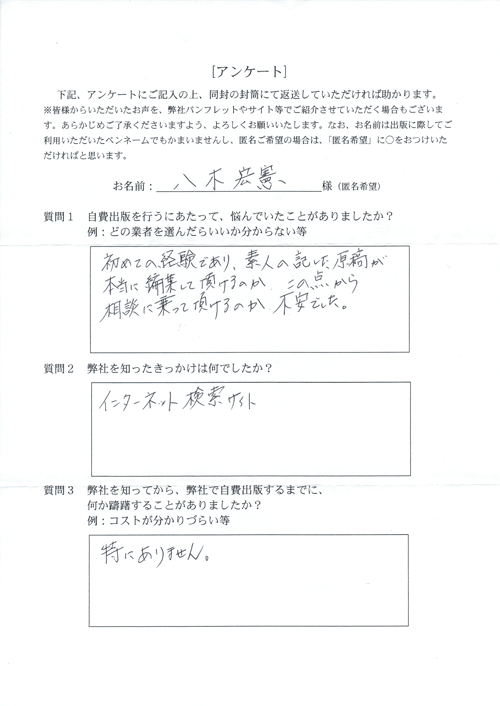 [アンケート]
下記、アンケートにご記入の上、同封の封筒にて返送していただければ助かります。
※皆様からいただいたお声を、弊社パンフレットやサイト等でご紹介させていただく場合もございま
す。あらかじめご了承くださいますよう、よろしくお願いいたします。なお、お名前は出版に際してご
利用いただいたペンネームでもかまいませんし、匿名ご希望の場合は、「匿名希望」に○をおつけいた
だければと思います。
お名前：八木 宏憲 様（匿名希望）
質問１ 自費出版を行うにあたって、悩んでいたことがありましたか？
例：どの業者を選んだらいいか分からない等
初めての経験であり、素人の記した原稿が
本当に編集して頂けるのか、この点から
相談に乗って頂けるのか不安でした。
質問２ 弊社を知ったきっかけは何でしたか？
インターネット検索サイト
質問３ 弊社を知ってから、弊社で自費出版するまでに、
何か躊躇することがありましたか？
例：コストが分かりづらい等
特にありません。